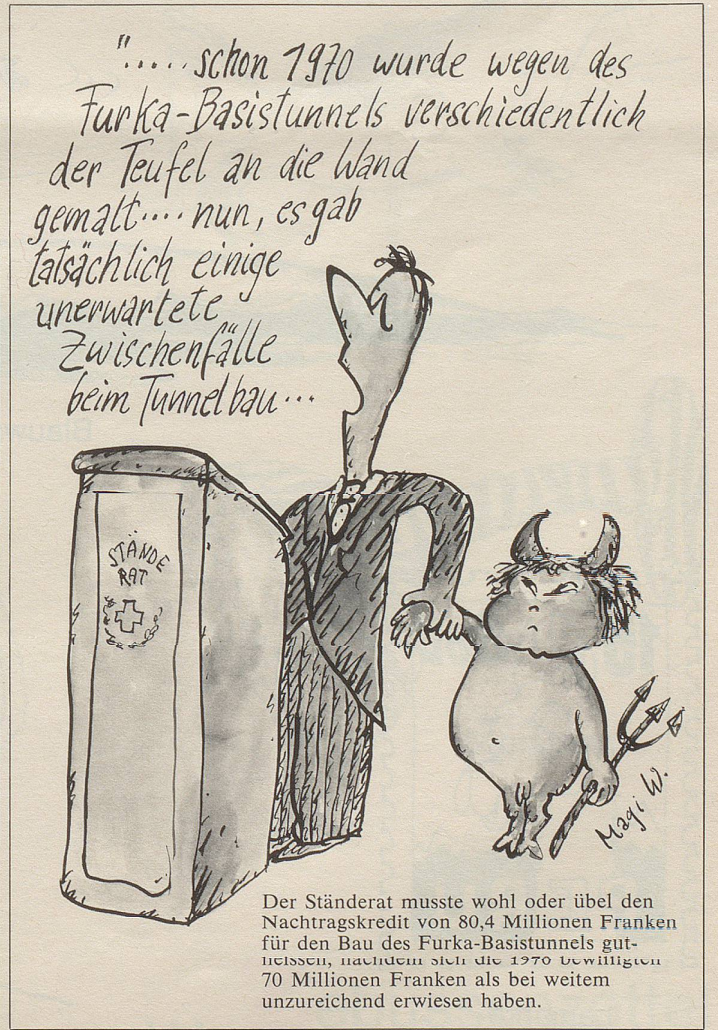 "..... schon 1970 wurde wegen des
Furka-Basistunnels verschiedentlich
der Teufel an die Wand
gemalt.... nun, es gab
tatsächlich einige
unerwartete
Zwischenfälle
beim Tunnelbau...
STÄNDE
RAT
Magi W.
Der Ständerat musste wohl oder übel den
Nachtragskredit von 80,4 Millionen Franken
für den Bau des Furka-Basistunnels gut-
heissen, nachdem sich die 1970 bewilligten
70 Millionen Franken als bei weitem
unzureichend erwiesen haben.